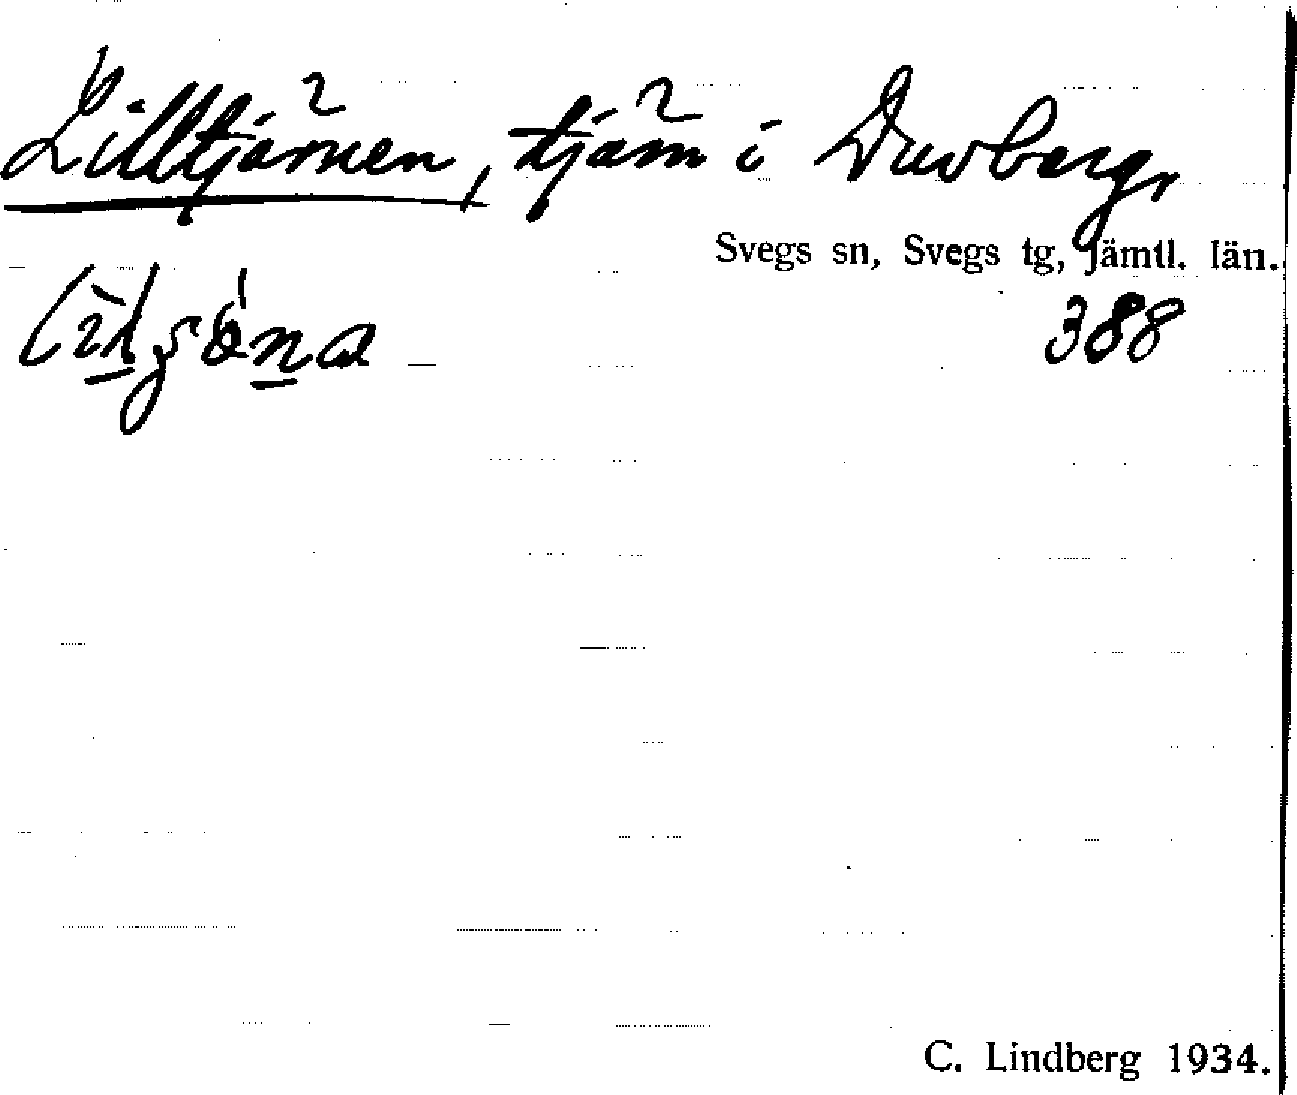 Lilltjärnen, tjärn i Duvberg,
Svegs sn, Svegs tg, Jämtl. län.
388
C. Lindberg 1934.